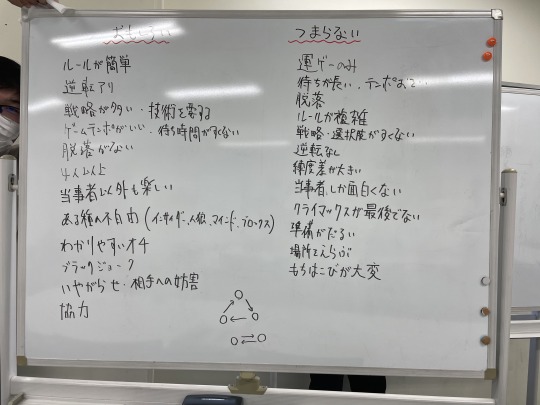 おもしろい
ルールが簡単
逆転アリ
戦略が多い・技術を要する
ゲームテンポがいい・待ち時間がすくない
脱落がない
4人以上
当事者以外も楽しい
ある種の不自由(インサイダー、人狼、マインド、ブロックス)
わかりやすいオチ
ブラックジョーク
いやがらせ・相手への妨害
協力
つまらない
運ゲーのみ
待ちが長い、テンポ
脱落
ルールが複雑
戦略・選択度がすくない
逆転なし
練度差が大きい
当事者しか面白くない
クライマックスが最後でない
準備がだるい
場所をえらぶ
もちはこびが大変